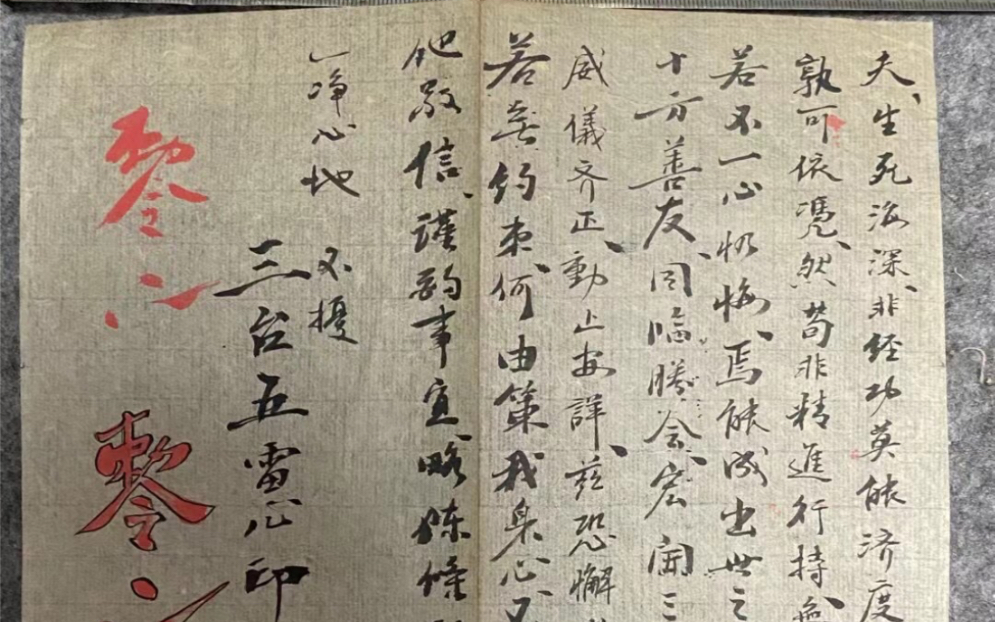 夫、生死海深、非經功英能济度
孰可依凭、然苟非精進行持、
若不一心忏悔、焉能成出世之
十方善友、同临勝会、宏開三
威儀齐正、動止安詳、茲恐懈
若無约束、何由策我身心、又
他敬信、謹药事宜、略陈條
净心地　不擾
三台五雷心印
敕令
敕令